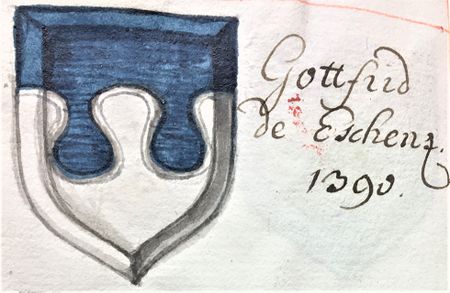 Gottfrid
de Eschenz.
1390.